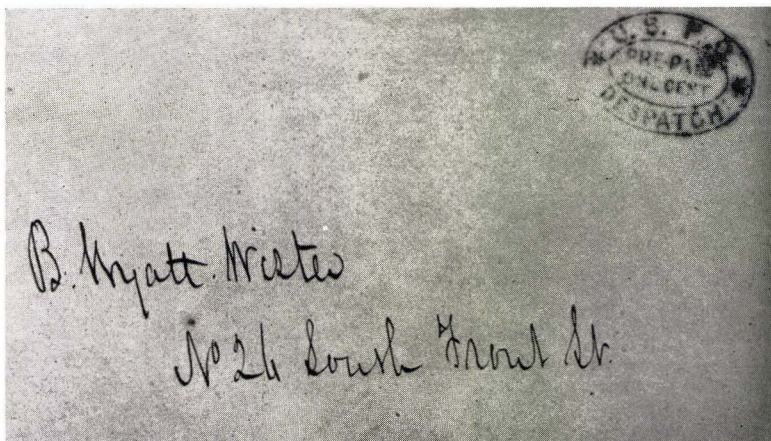 U.S. P.O.
PRE-PAID
ONE CENT
DESPATCH
B. Wyatt. Wister
No 24 South Front St.